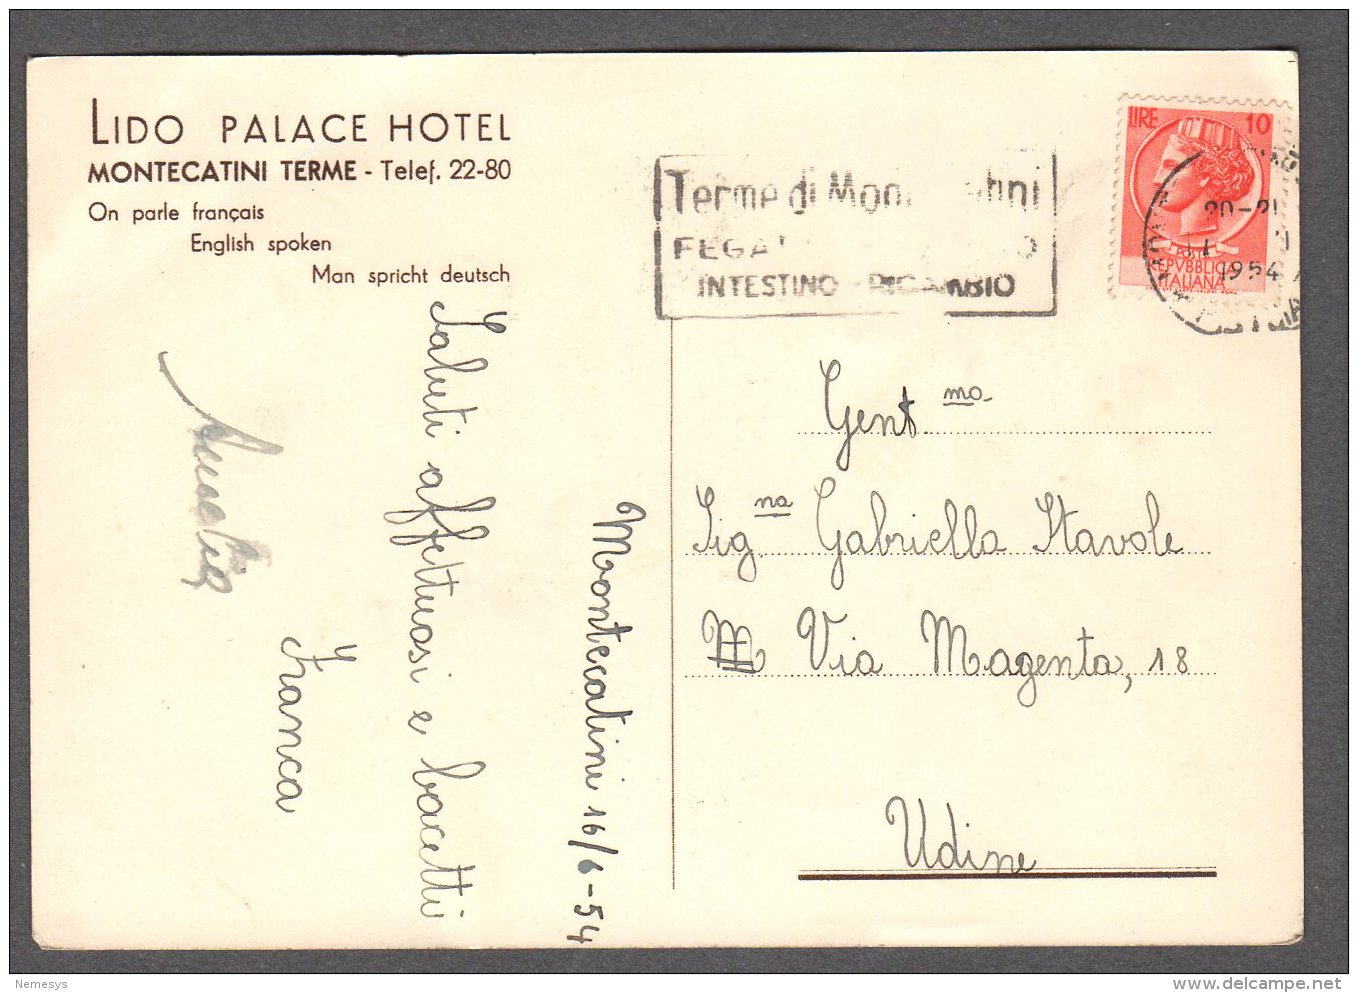 LIDO PALACE HOTEL
MONTECATINI TERME - Telef. 22-80
On parle français
English spoken
Man spricht deutsch
Terme di
INTESTINO - RICAMBIO
LIRE 10
REPVBBLICA
ITALIANA
20-21
1954
Montecatini 16/6-54
Saluti affettuosi e bacetti
Franca
Gent.mo
Sig.na Gabriella Stavole
Via Magenta, 18
Udine
Nemesys
www.delcampe.net